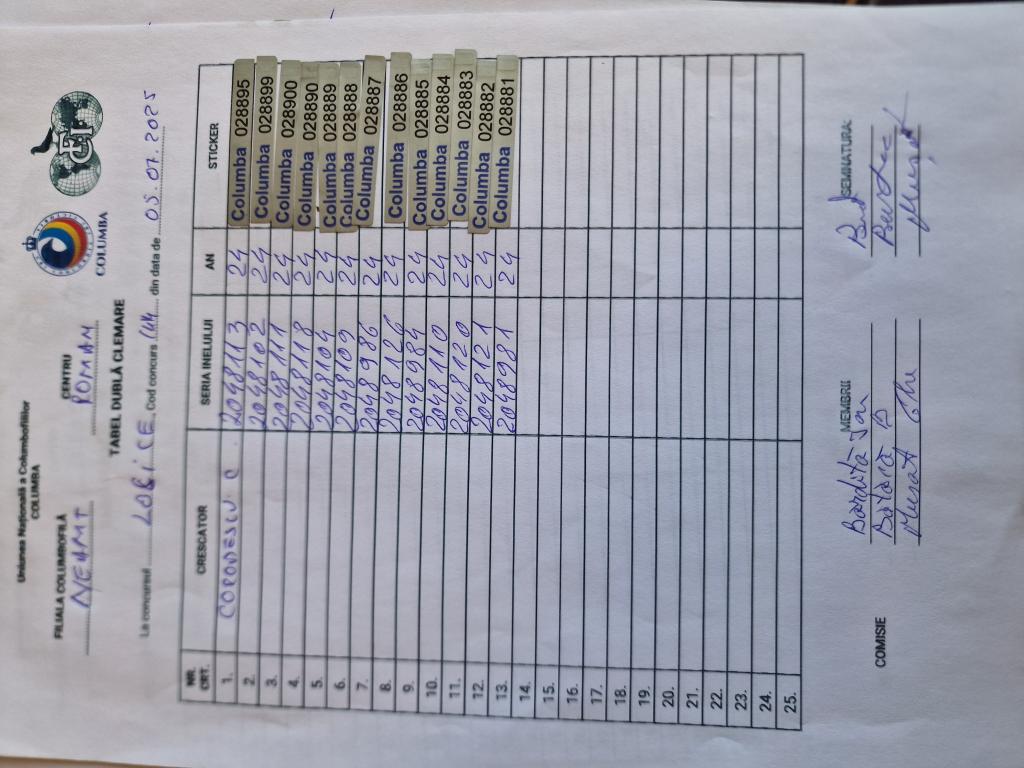 Uniunea Națională a Columbofililor
COLUMBA
FILIALA COLUMBOFILĂ CENTRU
NEAMT ROMAN
COLUMBA
FCI
TABEL DUBLĂ CLEMARE
La concursul LOBICE Cod concurs din data de 05.07.2025
NR. CRT. CRESCATOR SERIA INELULUI AN STICKER
1. COPODESCU C 2048113 24 Columba 028895
2. 2048102 24 Columba 028899
3. 2048111 24 Columba 028900
4. 2048118 24 Columba 028890
5. 2048104 24 Columba 028889
6. 2048109 24 Columba 028888
7. 2048986 24 Columba 028887
8. 2048126 24 Columba 028886
9. 2048984 24 Columba 028885
10. 2048110 24 Columba 028884
11. 2048120 24 Columba 028883
12. 2048121 24 Columba 028882
13. 2048981 24 Columba 028881
14.
15.
16.
17.
18.
19.
20.
21.
22.
23.
24.
25.
COMISIE MEMBRII SEMNATURA:
Murat